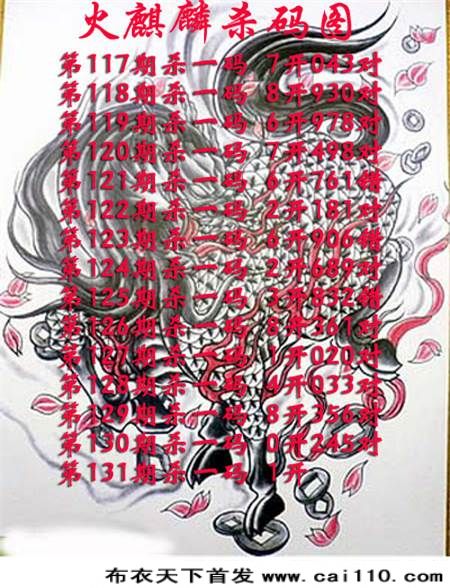 火麒麟杀码图
第117期杀一码 7开043对
第118期杀一码 8开930对
第119期杀一码 6开978对
第120期杀一码 7开498对
第121期杀一码 6开761错
第122期杀一码 2开181对
第123期杀一码 6开906错
第124期杀一码 2开689对
第125期杀一码 3开832错
第126期杀一码 8开361对
第127期杀一码 1开020对
第128期杀一码 4开033对
第129期杀一码 8开356对
第130期杀一码 0开245对
第131期杀一码 1开
布衣天下首发 www.cai110.com